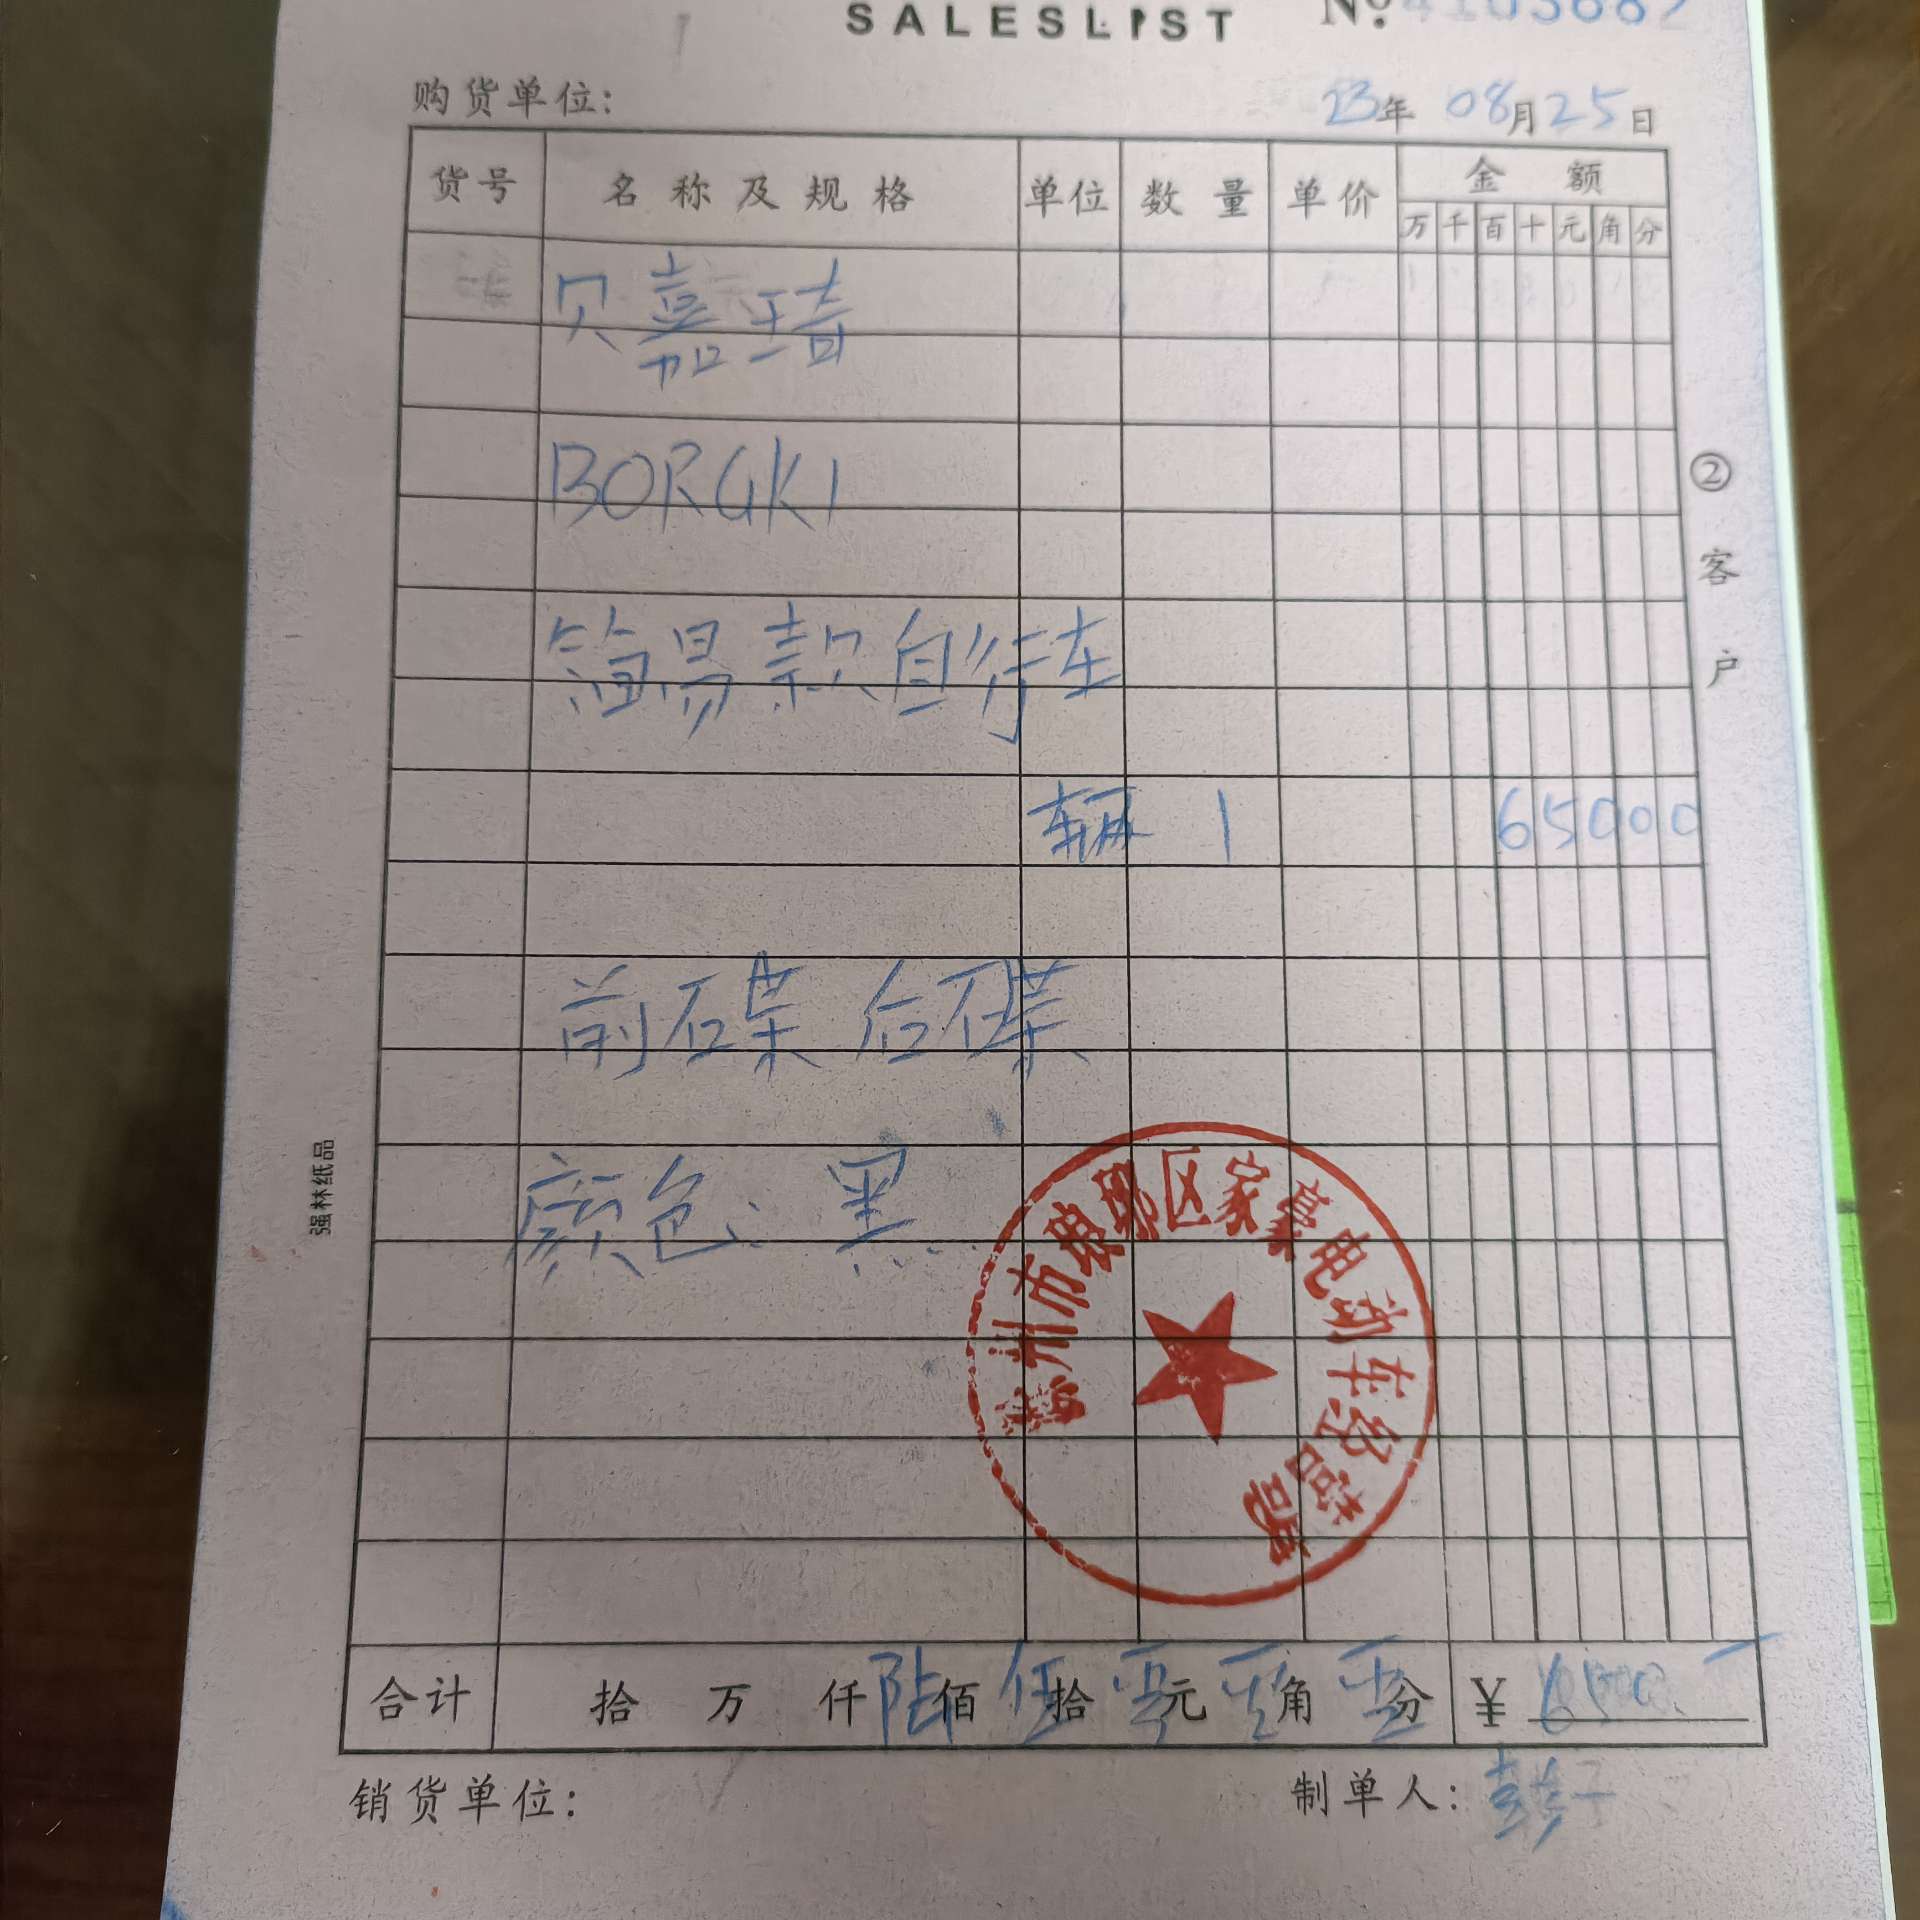 SALESLIST
购货单位: 23年 08月25日
货号 名称及规格 单位 数量 单价 金额
万 千 百 十 元 角 分
贝嘉琦
BORGKI
简易款自行车
辆 1 65000
前碟 后碟
颜色: 黑
②客户
强林纸品
州市 区家豪电动车经营部
合计 拾 万 仟 陆佰 伍拾 零元 零角 零分 ¥ 650.
销货单位: 制单人: